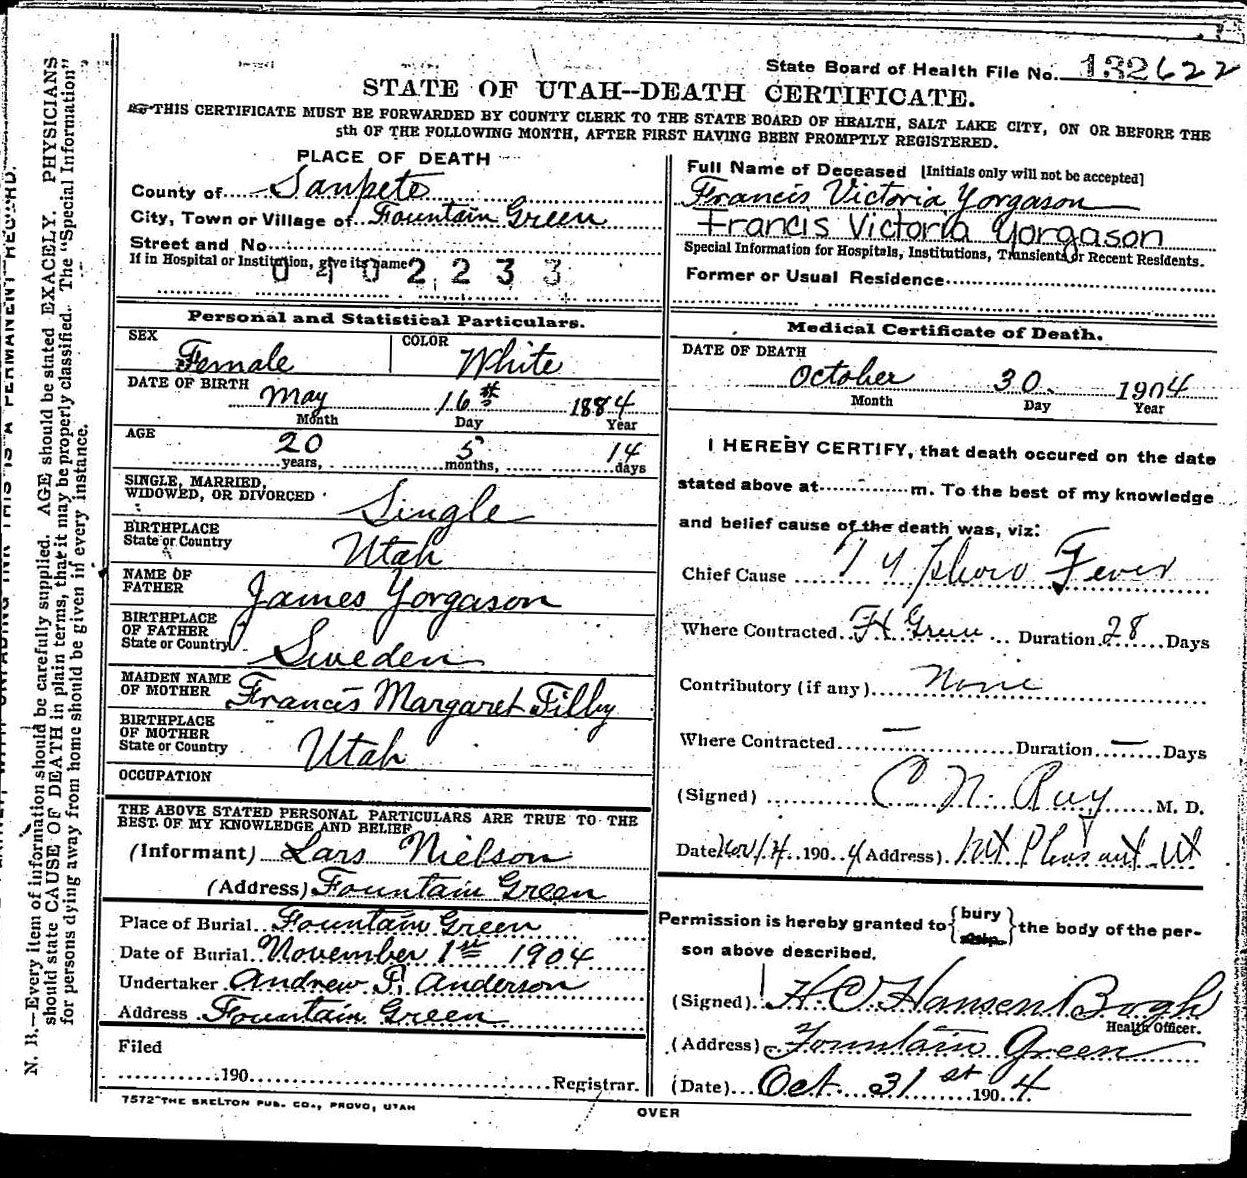 State Board of Health File No. 132622
STATE OF UTAH--DEATH CERTIFICATE.
THIS CERTIFICATE MUST BE FORWARDED BY COUNTY CLERK TO THE STATE BOARD OF HEALTH, SALT LAKE CITY, ON OR BEFORE THE
5th OF THE FOLLOWING MONTH, AFTER FIRST HAVING BEEN PROMPTLY REGISTERED.
PLACE OF DEATH
County of Sanpete
City, Town or Village of Fountain Green
Street and No.
If in Hospital or Institution, give its name
0402233
Full Name of Deceased [Initials only will not be accepted]
Francis Victoria Yorgason
Francis Victoria Yorgason
Special Information for Hospitals, Institutions, Transients or Recent Residents.
Former or Usual Residence
Personal and Statistical Particulars.
SEX Female COLOR White
DATE OF BIRTH May 16th 1884
Month Day Year
AGE 20 years, 5 months, 14 days
SINGLE, MARRIED,
WIDOWED, OR DIVORCED Single
BIRTHPLACE
State or Country Utah
NAME OF
FATHER James Yorgason
BIRTHPLACE
OF FATHER
State or Country Sweden
MAIDEN NAME
OF MOTHER Francis Margaret Filby
BIRTHPLACE
OF MOTHER
State or Country Utah
OCCUPATION
THE ABOVE STATED PERSONAL PARTICULARS ARE TRUE TO THE
BEST OF MY KNOWLEDGE AND BELIEF
(Informant) Lars Nielson
(Address) Fountain Green
Place of Burial Fountain Green
Date of Burial November 1st 1904
Undertaker Andrew P. Anderson
Address Fountain Green
Filed
190 Registrar.
7572 THE SKELTON PUB. CO., PROVO, UTAH
Medical Certificate of Death.
DATE OF DEATH
October 30 1904
Month Day Year
I HEREBY CERTIFY, that death occured on the date
stated above at m. To the best of my knowledge
and belief cause of the death was, viz:
Chief Cause Typhoid Fever
Where Contracted Ft Green Duration 28 Days
Contributory (if any) None
Where Contracted — Duration — Days
(Signed) C N. Ray M. D.
Date Nov/4 1904 (Address) Mt Pleasant Ut
Permission is hereby granted to {bury} the body of the per-
son above described.
(Signed) H. C. Hansen Bogh
Health Officer.
(Address) Fountain Green
(Date) Oct. 31st 1904
OVER
N. B.—Every item of information should be carefully supplied. AGE should be stated EXACELY. PHYSICIANS
should state CAUSE OF DEATH in plain terms, that it may be properly classified. The "Special Information"
for persons dying away from home should be given in every instance.